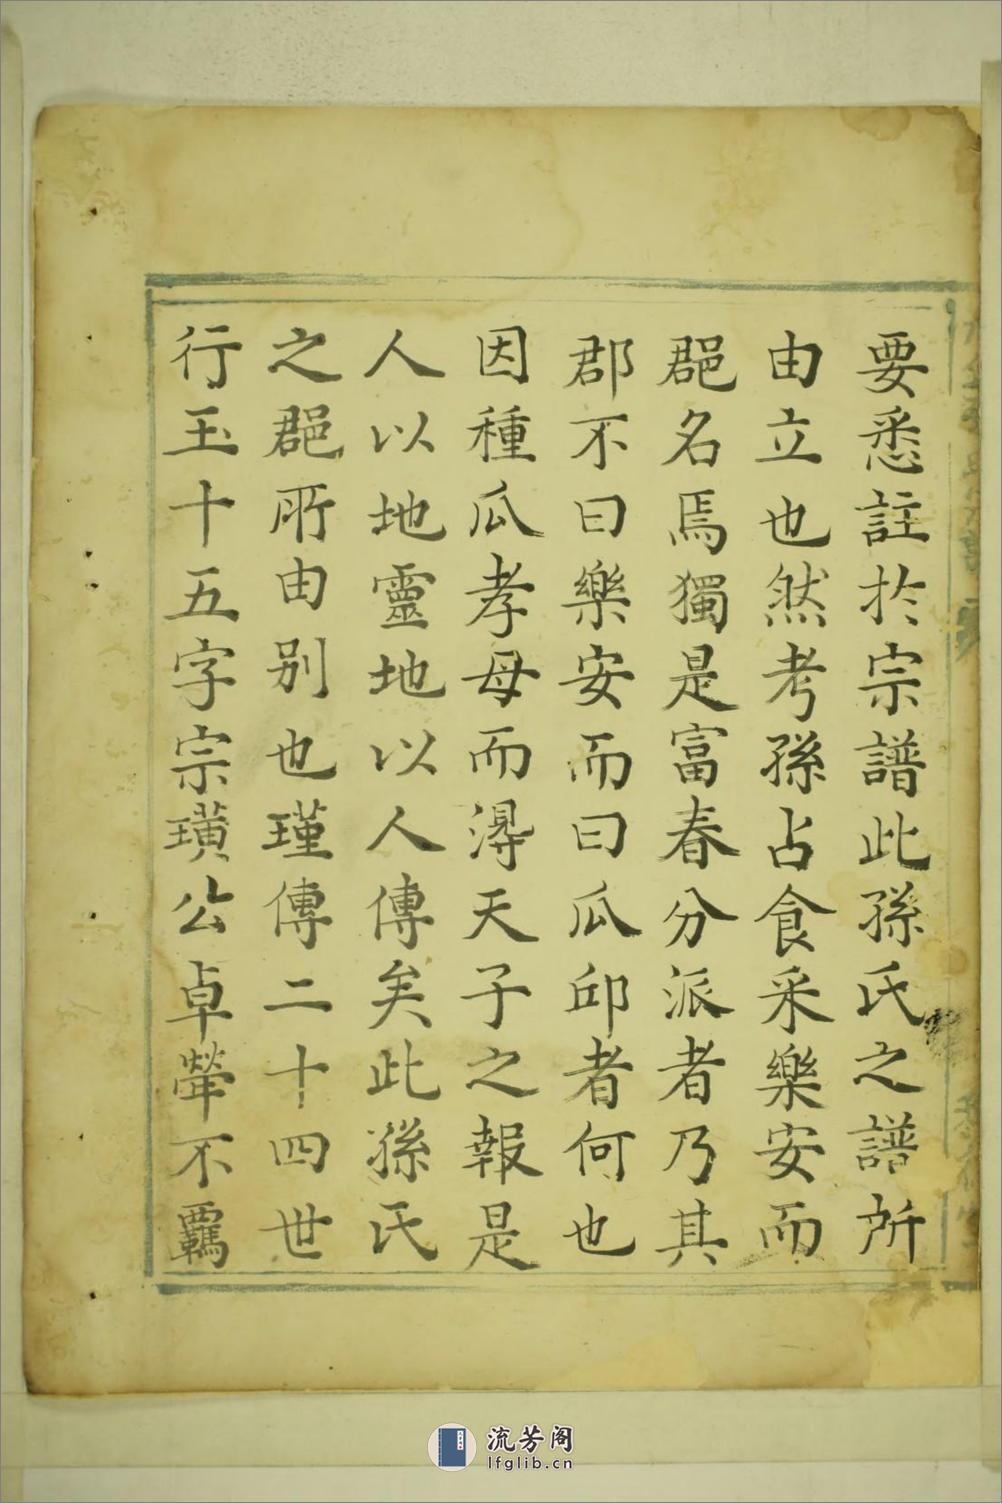 要悉註於宗譜此孫氏之譜所
由立也然考孫占食采樂安而
郡名焉獨是富春分派者乃其
郡不曰樂安而曰瓜邱者何也
因種瓜孝母而得天子之報是
人以地靈地以人傳矣此孫氏
之郡所由别也瑾傳二十四世
行玉十五字宗璜公卓犖不羈
流芳阁
lfglib.cn